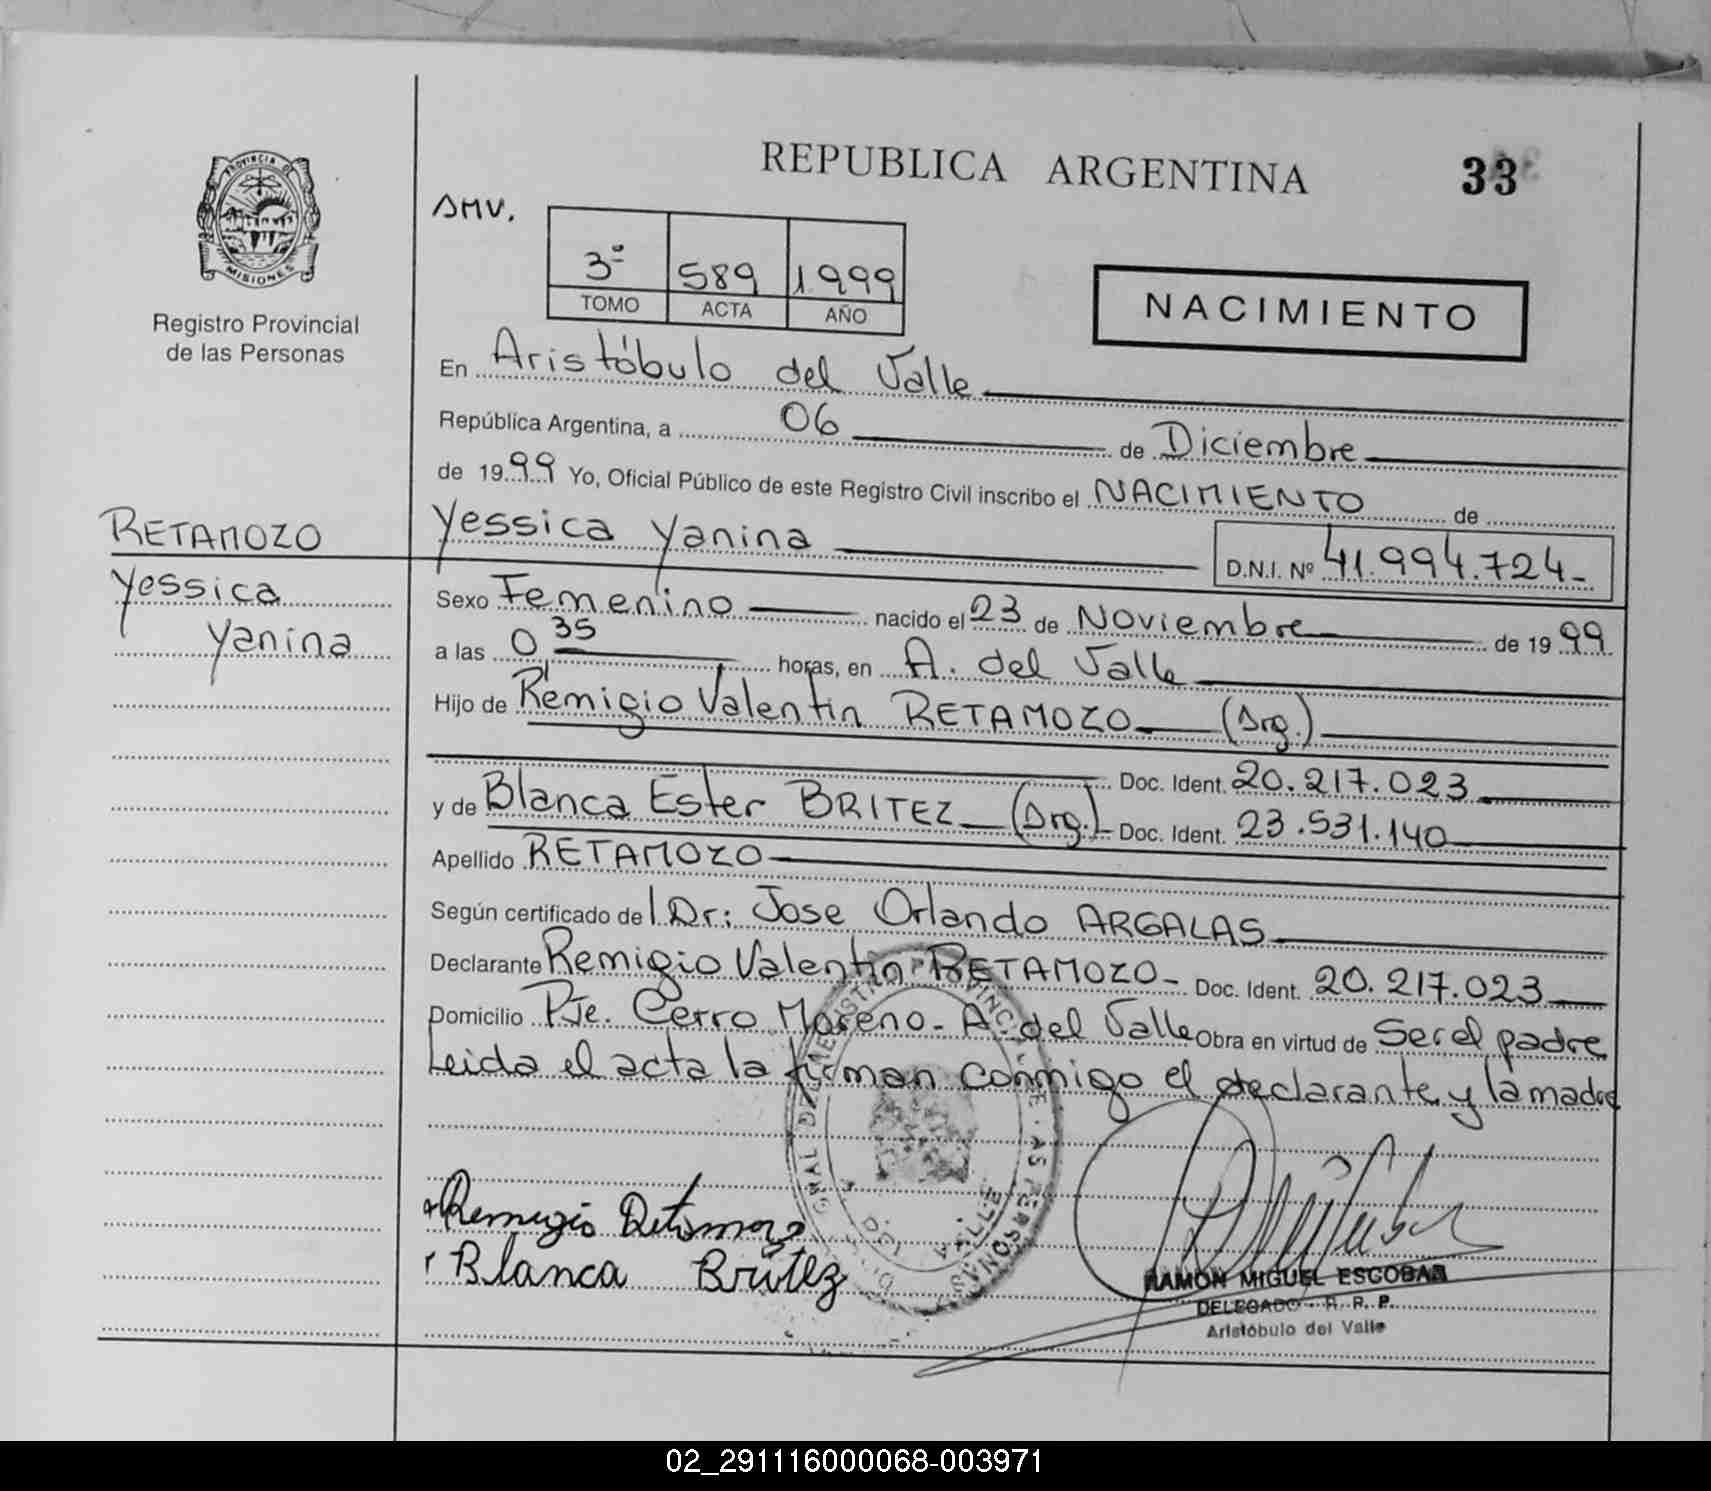 REPUBLICA ARGENTINA
33
PROVINCIA DE
MISIONES
Registro Provincial
de las Personas
AMV.
3º 589 1.999
TOMO ACTA AÑO
NACIMIENTO
En Aristóbulo del Valle
República Argentina, a 06 de Diciembre
de 1999 Yo, Oficial Público de este Registro Civil inscribo el NACIMIENTO de
RETAMOZO
Yessica
Yanina
Yessica Yanina D.N.I. Nº 41.994.724-
Sexo Femenino nacido el 23 de Noviembre de 1999
a las 0 35 horas, en A. del Valle
Hijo de Remigio Valentin RETAMOZO (Arg.)
Doc. Ident. 20.217.023
y de Blanca Ester BRITEZ (Arg.) Doc. Ident. 23.531.140
Apellido RETAMOZO
Según certificado del Dr: Jose Orlando ARGALAS
Declarante Remigio Valentin RETAMOZO- Doc. Ident. 20.217.023
Domicilio Pje. Cerro Moreno- A. del Valle Obra en virtud de Ser el padre
Leida el acta la firman conmigo el declarante y la madre
Remigio Retamozo
Blanca Britez
RAMON MIGUEL ESCOBAR
DELEGADO - R. R. P.
Aristóbulo del Valle
02_291116000068-003971